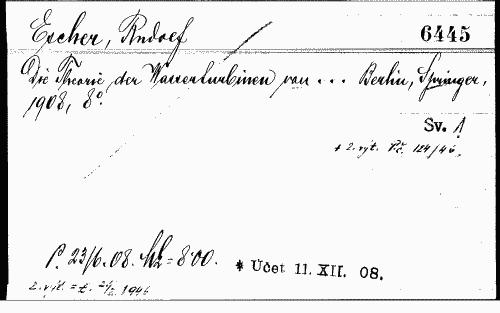 Escher, Rudolf
6445
Die Theorie der Wasserturbinen von ... Berlin, Springer,
1908, 8°.
Sv. 1
+ 2. výt. Př. 124/46.
P. 23/6. 08. = 8·00.
* Účet 11. XII. 08.
2. výt. = 1946